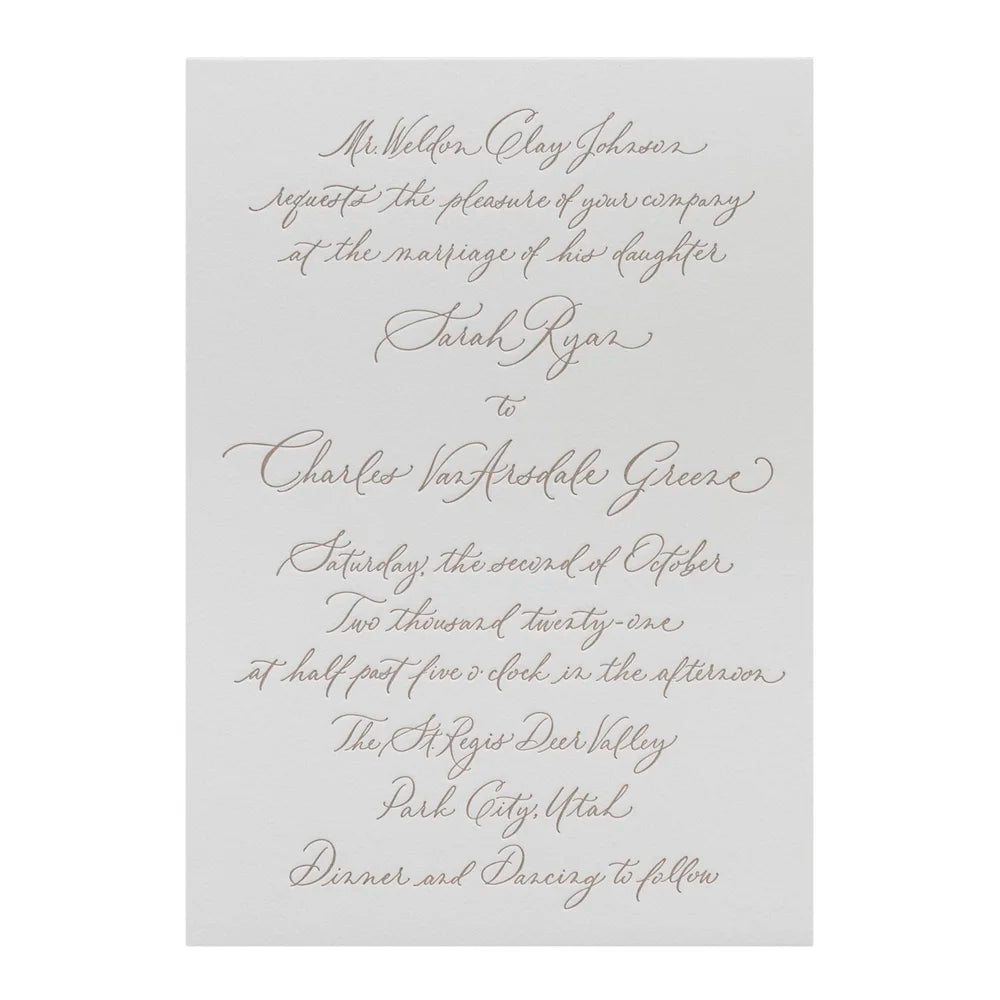 Mr. Weldon Clay Johnson
requests the pleasure of your company
at the marriage of his daughter
Sarah Ryan
to
Charles VanArsdale Greene
Saturday, the second of October
Two thousand twenty-one
at half past five o'clock in the afternoon
The St. Regis Deer Valley
Park City, Utah
Dinner and Dancing to follow